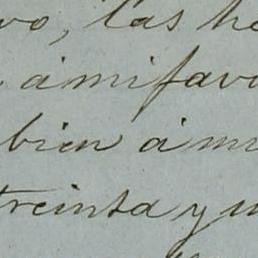 vo, las he
á mi favo
bien á mi
treinta y u